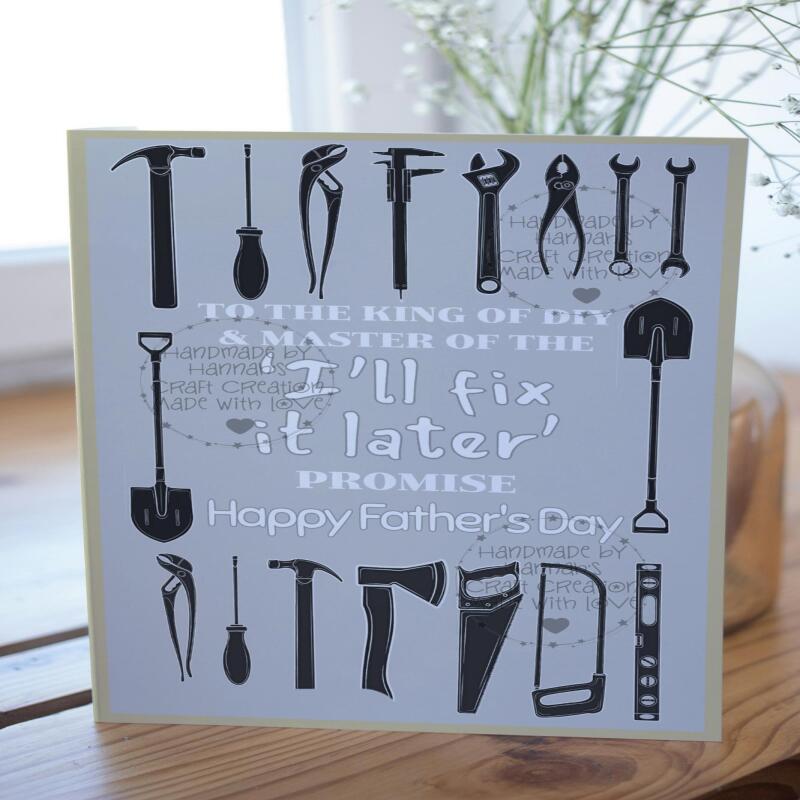 Handmade by
Hannah's
Craft Creation
Made with love
TO THE KING OF DIY
& MASTER OF THE
Handmade by
Hannah's
Craft Creation
Made with love
'I'll fix
it later'
PROMISE
Happy Father's Day
Handmade by
Hannah's
Craft Creation
Made with love